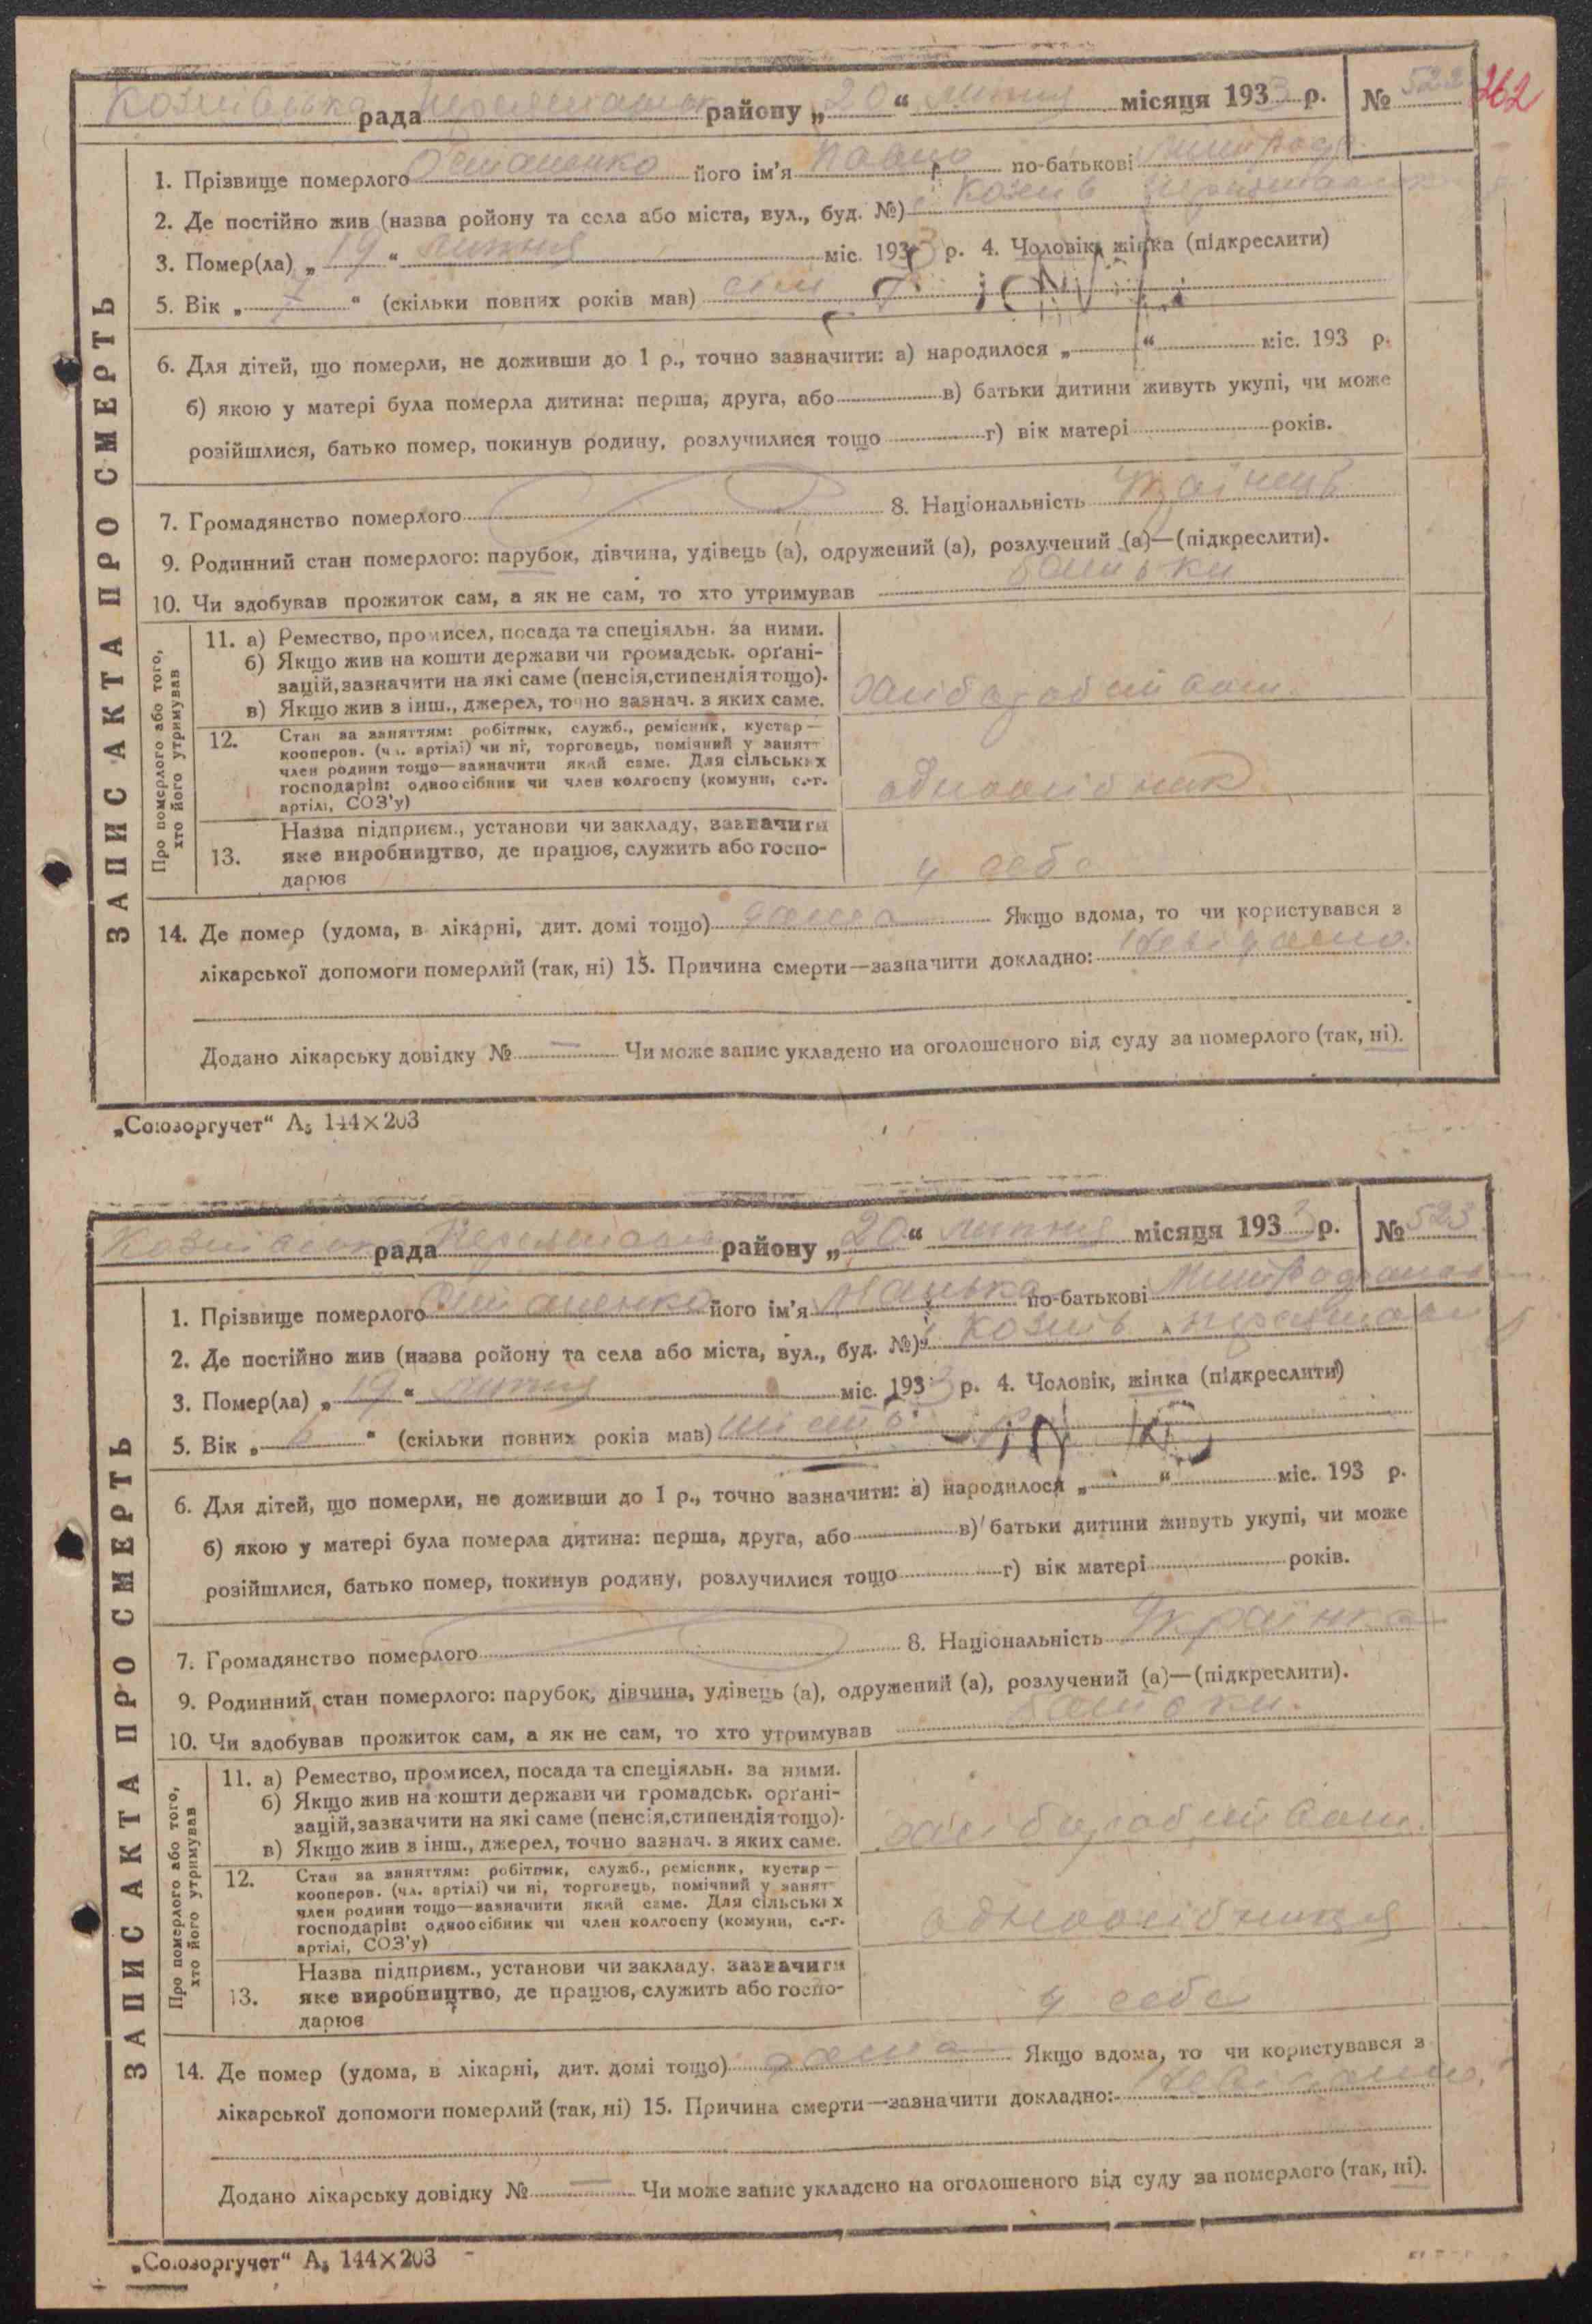 рада району „20“ липня місяця 1933 р. № 522 262
1. Прізвище померлого його ім'я Павло по-батькові
2. Де постійно жив (назва ройону та села або міста, вул., буд. №)
3. Помер(ла) „19“ липня міс. 1933 р. 4. Чоловік, жінка (підкреслити)
5. Вік „7“ (скільки повних років мав) сім 7
6. Для дітей, що померли, не доживши до 1 р., точно зазначити: а) народилося „ “ міс. 193 р.
б) якою у матері була померла дитина: перша, друга, або в) батьки дитини живуть укупі, чи може
розійшлися, батько помер, покинув родину, розлучилися тощо г) вік матері років.
7. Громадянство померлого 8. Національність
9. Родинний стан померлого: парубок, дівчина, удівець (а), одружений (а), розлучений (а)—(підкреслити).
10. Чи здобував прожиток сам, а як не сам, то хто утримував батьки
ЗАПИС АКТА ПРО СМЕРТЬ
Про померлого або того,
хто його утримував
11. а) Ремество, промисел, посада та спеціяльн. за ними.
б) Якщо жив на кошти держави чи громадськ. орґані-
зацій, зазначити на які саме (пенсія, стипендія тощо).
в) Якщо жив з інш., джерел, точно зазнач. з яких саме.
12. Стан за заняттям: робітник, служб., ремісник, кустар—
кооперов. (чл. артілі) чи ні, торговець, помічний у занят-
член родини тощо—зазначити який саме. Для сільських
господарів: одноосібник чи член колгоспу (комуни, с.-г.
артілі, СОЗ'у)
одноосібник
13. Назва підприєм., установи чи закладу, зазначити
яке виробництво, де працює, служить або госпо-
дарює
у себе
14. Де помер (удома, в лікарні, дит. домі тощо) дома Якщо вдома, то чи користувався з
лікарської допомоги померлий (так, ні) 15. Причина смерти—зазначити докладно: Невідомо.
Додано лікарську довідку № — Чи може запис укладено на оголошеного від суду за померлого (так, ні).
„Союзоргучет“ А5 144×203
рада району „20“ липня місяця 1933 р. № 523
1. Прізвище померлого його ім'я по-батькові
2. Де постійно жив (назва ройону та села або міста, вул., буд. №)
3. Помер(ла) „19“ липня міс. 1933 р. 4. Чоловік, жінка (підкреслити)
5. Вік „6“ (скільки повних років мав) шість
6. Для дітей, що померли, не доживши до 1 р., точно зазначити: а) народилося „ “ міс. 193 р.
б) якою у матері була померла дитина: перша, друга, або в) батьки дитини живуть укупі, чи може
розійшлися, батько помер, покинув родину, розлучилися тощо г) вік матері років.
7. Громадянство померлого 8. Національність Українка
9. Родинний стан померлого: парубок, дівчина, удівець (а), одружений (а), розлучений (а)—(підкреслити).
10. Чи здобував прожиток сам, а як не сам, то хто утримував батьки.
ЗАПИС АКТА ПРО СМЕРТЬ
Про померлого або того,
хто його утримував
11. а) Ремество, промисел, посада та спеціяльн. за ними.
б) Якщо жив на кошти держави чи громадськ. орґані-
зацій, зазначити на які саме (пенсія, стипендія тощо).
в) Якщо жив з інш., джерел, точно зазнач. з яких саме.
12. Стан за заняттям: робітник, служб., ремісник, кустар—
кооперов. (чл. артілі) чи ні, торговець, помічний у занят-
член родини тощо—зазначити який саме. Для сільських
господарів: одноосібник чи член колгоспу (комуни, с.-г.
артілі, СОЗ'у)
одноосібниця
13. Назва підприєм., установи чи закладу, зазначити
яке виробництво, де працює, служить або госпо-
дарює
у себе
14. Де помер (удома, в лікарні, дит. домі тощо) дома Якщо вдома, то чи користувався з
лікарської допомоги померлий (так, ні) 15. Причина смерти—зазначити докладно: Невідомо.
Додано лікарську довідку № — Чи може запис укладено на оголошеного від суду за померлого (так, ні).
„Союзоргучет“ А5 144×203